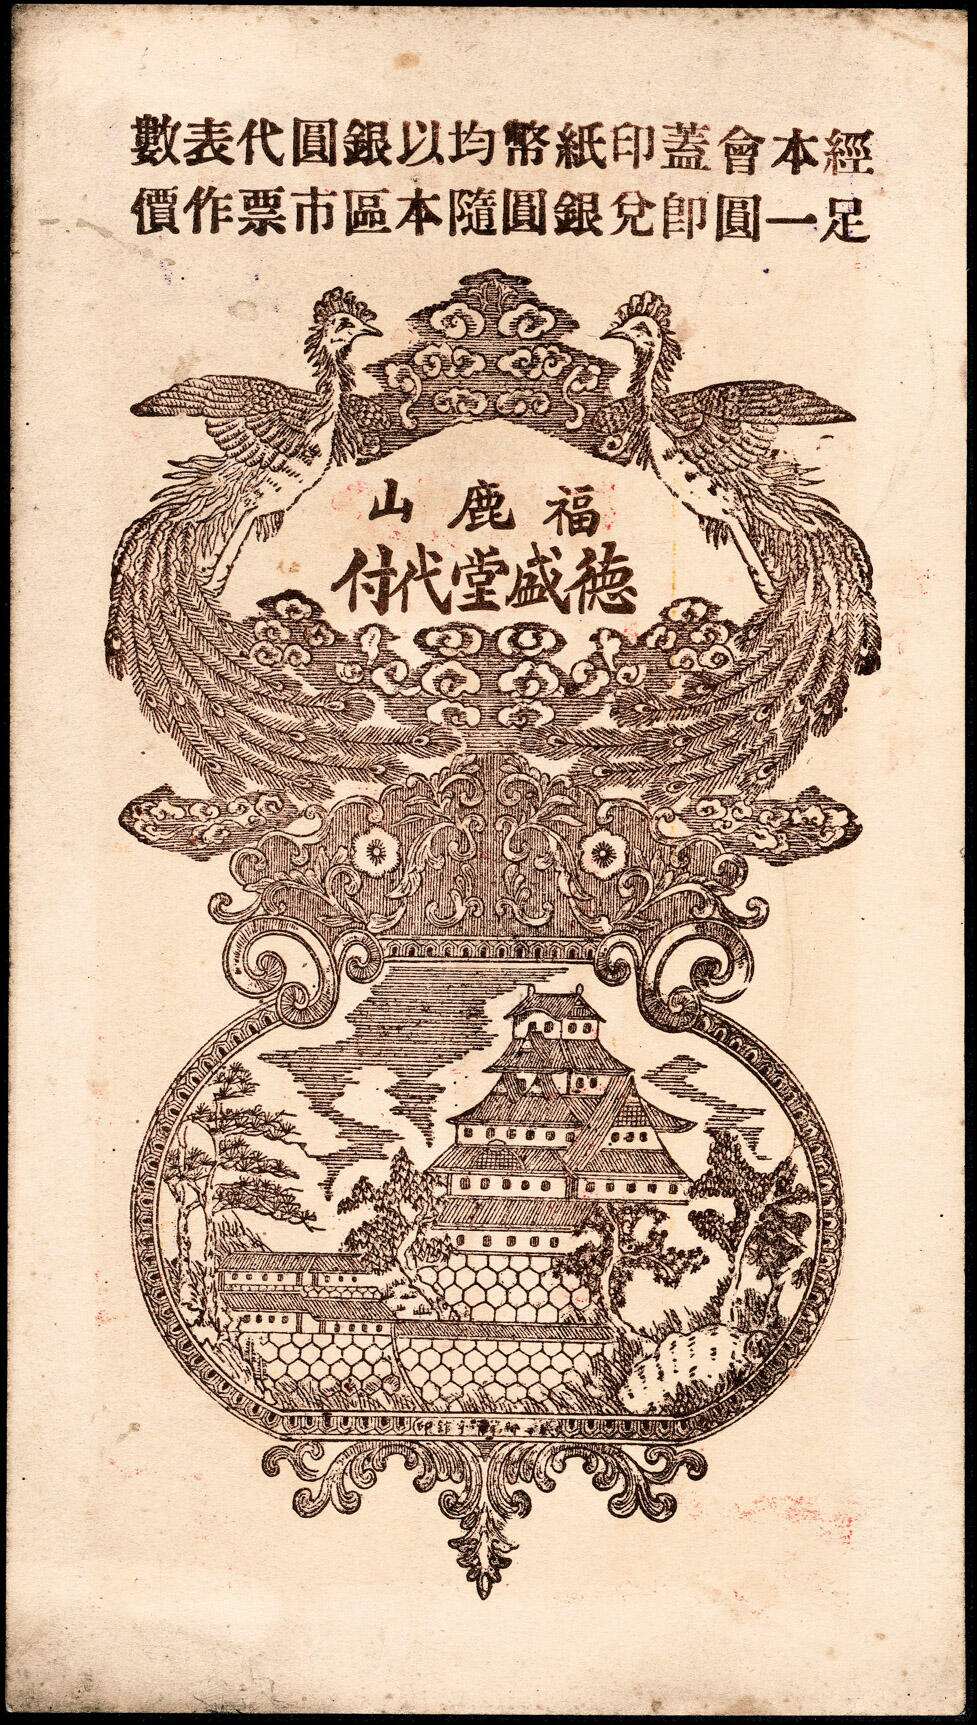 經本會蓋印紙幣均以銀圓代表數
足一圓即兌銀圓隨本區市票作價
福鹿山
德盛堂代付